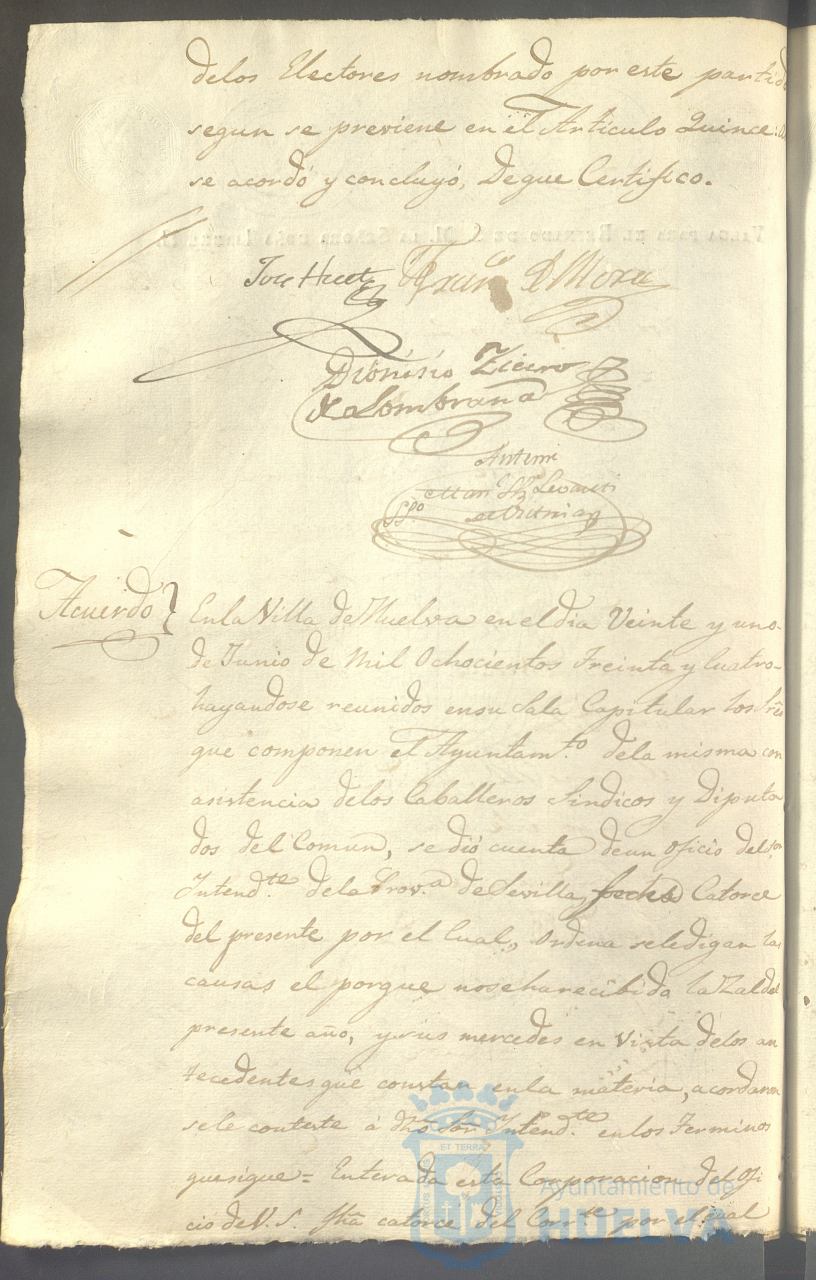 delos Electores nombrado por este partido
segun se previene en el Artículo Quince: a
se acordó y concluyó, Deque Certifico.
Jose Huet Fran.co D Mora
Dionisio
de Lombraña
Antemi
SS.no
Acuerdo
Enla Villa de Huelva en el dia Veinte y uno
de Junio de Mil Ochocientos Treinta y Cuatro
hayandose reunidos ensu Sala Capitular los Sres
que componen el Ayuntam.to dela misma con
asistencia delos Caballeros Sindicos y Diputa
dos del Comun, se dió cuenta deun oficio del S.or
Intend.te dela Prov.a de Sevilla, fecha Catorce
del presente por el Cual, Ordena seledigan las
causas el porque noseharecibida la Zal del
presente año, y sus mercedes en Vista delos an
tecedentes que constan enla materia, acordaron
sele conteste á dho Sor Intend.te enlos Terminos
quesigue = Enterada esta Corporacion del ofi
cio de V. S. fha catorce del Corr.te por el cual
ET TERRA
Ayuntamiento de
HUELVA